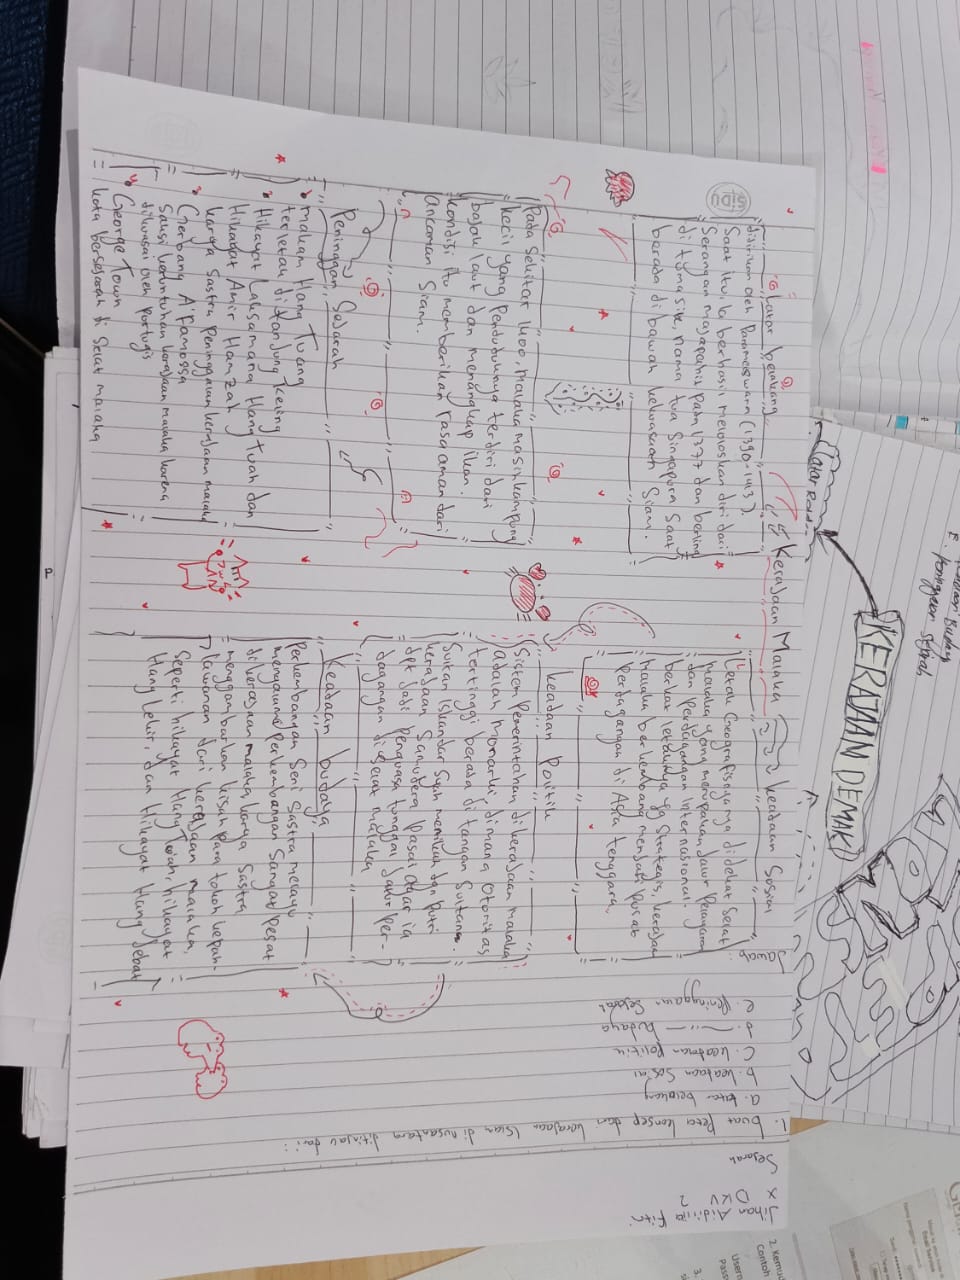 Jihan Aidilia Fitri
X DKV 2
Sejarah
1. buat peta konsep dari kerajaan Islam di nusantara ditinjau dari :
a. latar belakang
b. keadaan Sosial
c. keadaan politik
d. —〃— budaya
e. Peninggalan Sejarah
Jawab :
Kerajaan Malaka
latar belakang
didirikan oleh Parameswara (1390-1413).
Saat itu, Ia berhasil meloloskan diri dari
Serangan majapahit pada 1377 dan berling
di tumasik, nama tua Singapura Saat
berada dibawah kekuasaan Siam.
Pada Sekitar 1400, malaka masih kampung
kecil yang penduduknya terdiri dari
bajak laut dan menangkap ikan.
kondisi itu memberikan rasa aman dari
Ancaman Siam.
Peninggalan Sejarah
makam Hang Tuang
terletak di tanjung keling
Hikayat Laksamana Hang Tuah dan
Hikayat Amir Hamzah
karya Sastra peninggalan kerajaan malaka
Gerbang A'Famossa
Saksi keruntuhan kerajaan malaka karena
dikuasai oleh portugis
George Town
kota bersejarah di Selat malaka
keadaan Sosial
Letak Geografisnya di dekat Selat
malaka yang merupakan Jalur Pelayaran
dan perdagangan internasional.
berkat letaknya yg Strategis, kerajaan
malaka berkembang menjadi pusat
perdagangan di Asia tenggara.
keadaan Politik
Sistem pemerintahan di kerajaan malaka
adalah monarki, dimana otoritas
tertinggi berada di tangan Sultan.
Sultan Iskandar Syah menikah dgn putri
kerajaan Samudera Pasai agar ia
dpt Jadi penguasa tunggal Jalur per-
dagangan di Selat malaka
keadaan budaya
Perkembangan Seni Sastra melayu
mengalami perkembangan Sangat pesat
di kerajaan malaka. karya Sastra
menggambarkan kisah para tokoh kepah-
lawanan dari kerajaan malaka,
Seperti hikayat Hang Tuah, hikayat
Hang Lekir, dan Hikayat Hang Jebat
KERAJAAN DEMAK
E.
2
SIDU
2. Kemud
Contoh
3.